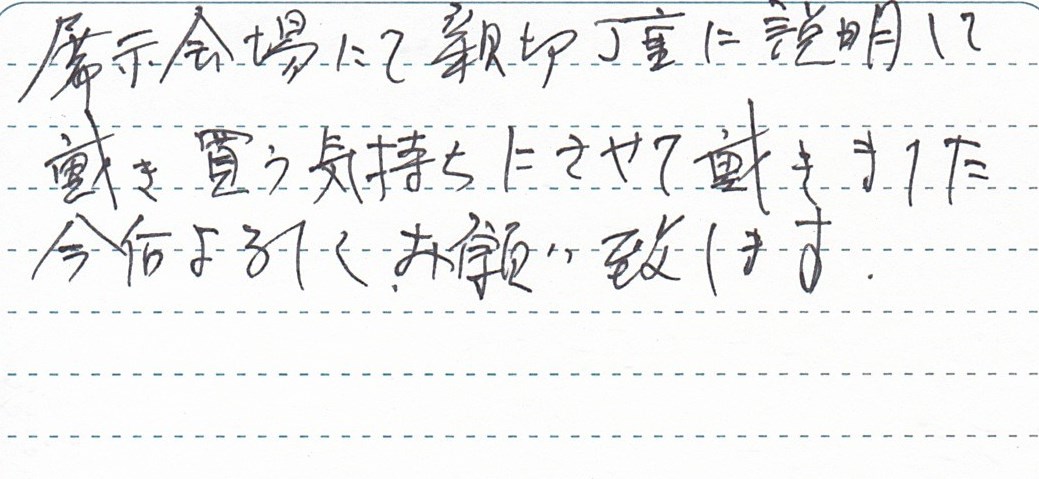 展示会場にて親切丁重に説明して
戴き買う気持ちにさせて戴きました
今后よろしくお願い致します.